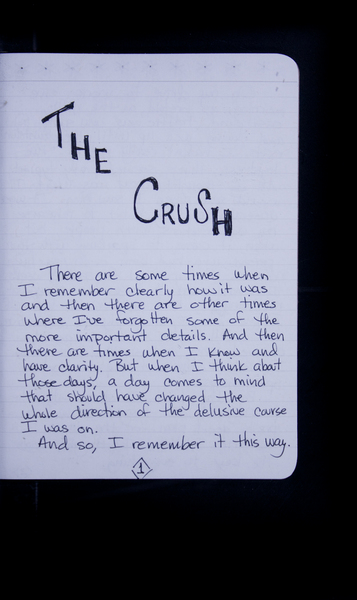 THE
CRUSH
There are some times when
I remember clearly how it was
and then there are other times
where I've forgotten some of the
more important details. And then
there are times when I know and
have clarity. But when I think about
those days, a day comes to mind
that should have changed the
whole direction of the delusive course
I was on.
And so, I remember it this way.
1